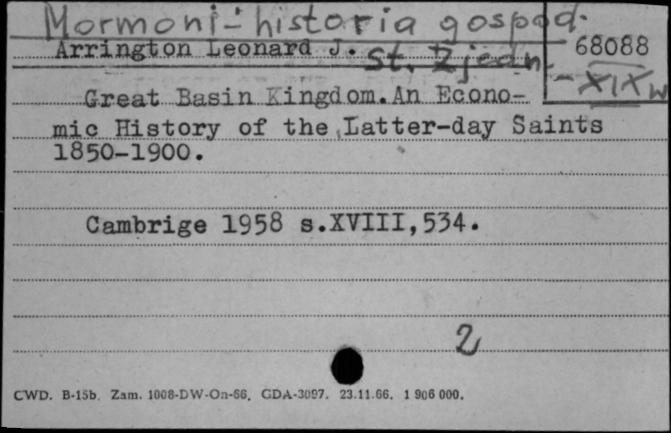 Mormoni - historia gospod.
Arrington Leonard J. St. Zjedn.
68088
- XIX w
Great Basin Kingdom.An Econo-
mic History of the Latter-day Saints
1850-1900.
Cambrige 1958 s.XVIII,534.
2
CWD. B-15b. Zam. 1008-DW-On-66. GDA-3097. 23.11.66. 1 906 000.